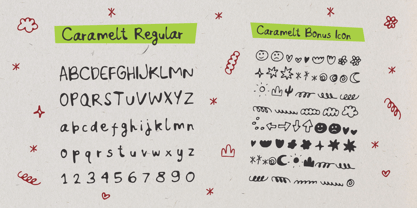 Caramelt Regular
ABCDEFGHIJKLMN
OPQRSTUVWXYZ
abcdefghijklmn
opqrstuvwxyz
1234567890
Caramelt Bonus Icon